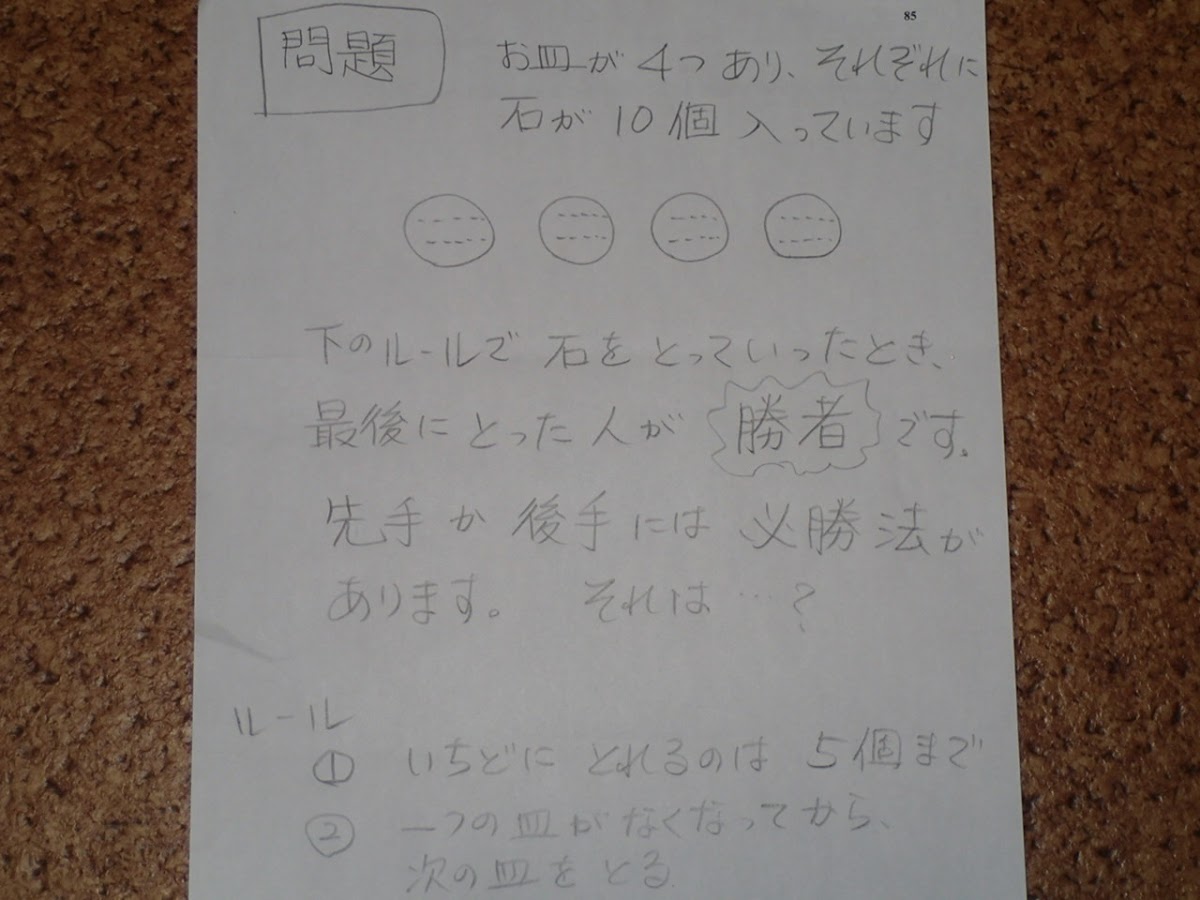 85
問題
お皿が4つあり、それぞれに
石が10個入っています
下のルールで石をとっていったとき、
最後にとった人が勝者です。
先手か後手には必勝法が
あります。 それは…?
ルール
① いちどにとれるのは5個まで
② 一つの皿がなくなってから、
次の皿をとる